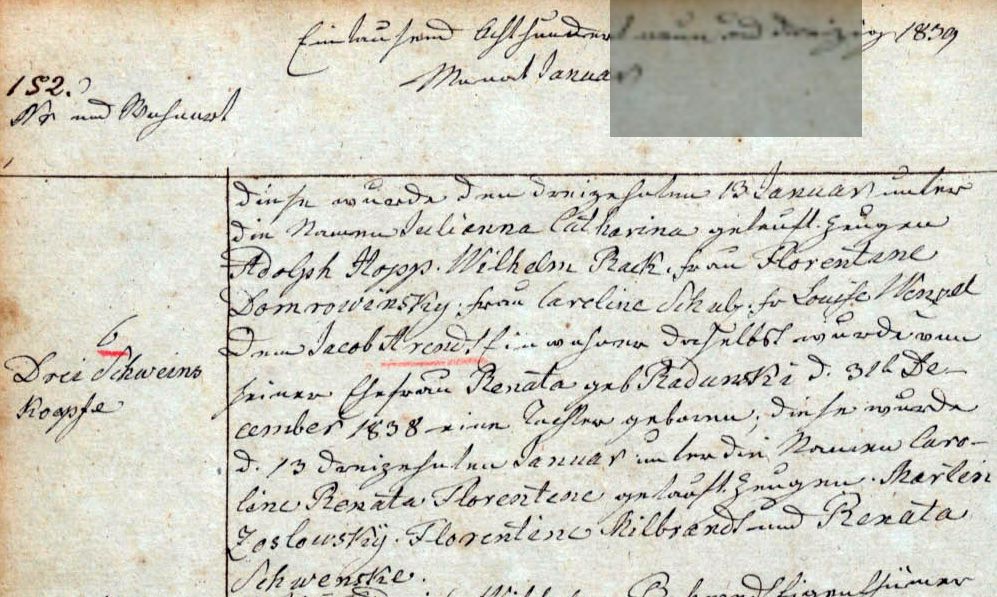 Eintausend Achthundert neun und dreizig 1839
Monat Januar
152.
Nr und Wohnort
diese wurde den dreizehnten 13 Januar unter
die Namen Julianna Catharina getauft. Zeugen
Adolph Hopp. Wilhelm Rack. frau Florentine
Domrowinsky. frau Careline Schulz. fr Louise Wenzel
6
Dem Jacob Arendt Einwohner daselbst wurde von
Drei Schweins
seiner Ehefrau Renata geb Radunski d. 31t De-
Koepfe
cember 1838 eine Tochter geboren, diese wurde
d. 13 dreizehnten Januar unter die Namen Caro-
line Renata Florentene getauft. Zeugen. Martin
Zoslowsky. Florentine Milbrandt und Renata
Schwenske.